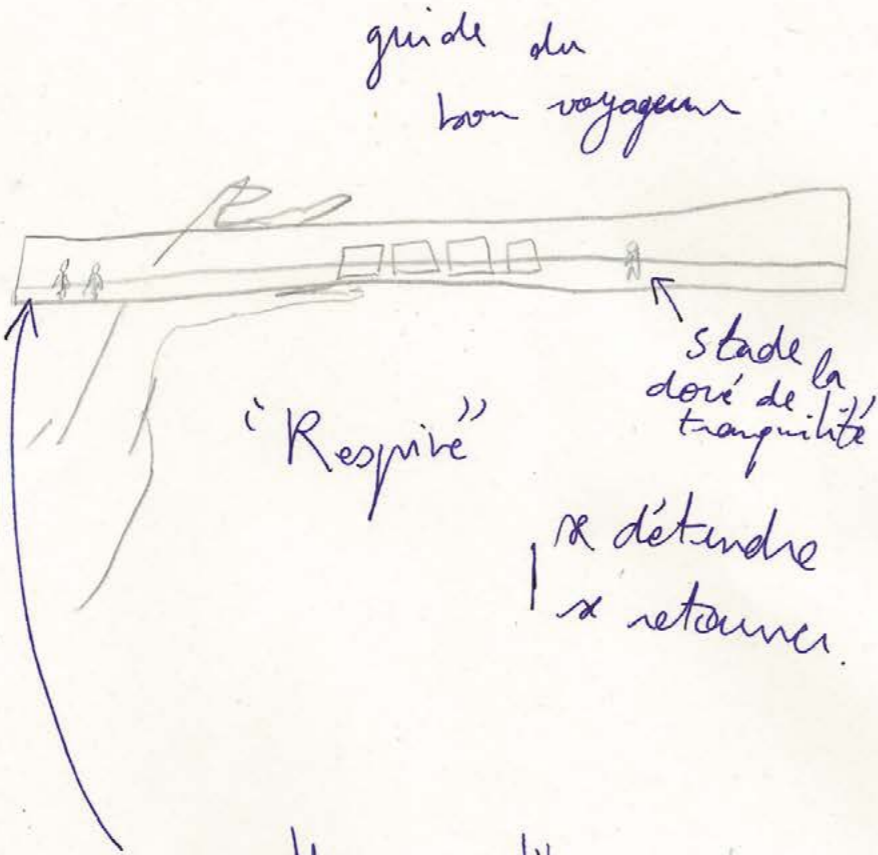 guide du
bon voyageur
stade
doré de la
tranquilité"
"Respire"
se détendre
se retourner.